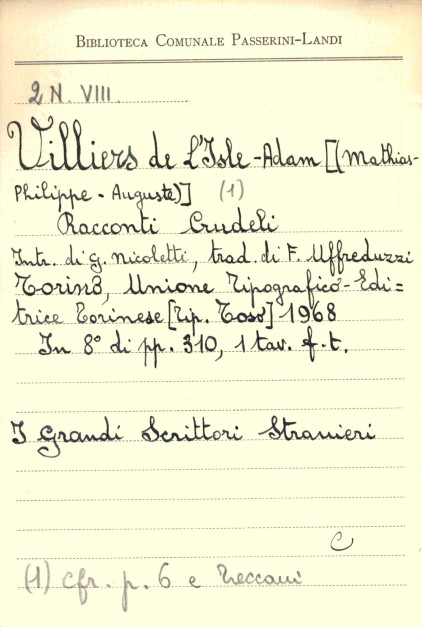 BIBLIOTECA COMUNALE PASSERINI-LANDI
2 N. VIII.
Villiers de L'Isle-Adam [(Mathias-
Philippe-Auguste)] (1)
Racconti Crudeli
Intr. di G. Nicoletti, trad. di F. Uffreduzzi
Torino, Unione Tipografico-Edi=
trice Torinese [Tip. Toso] 1968
In 8° di pp. 310, 1 tav. f.t.
I Grandi Scrittori Stranieri
C
(1) Cfr. p. 6 e Treccani